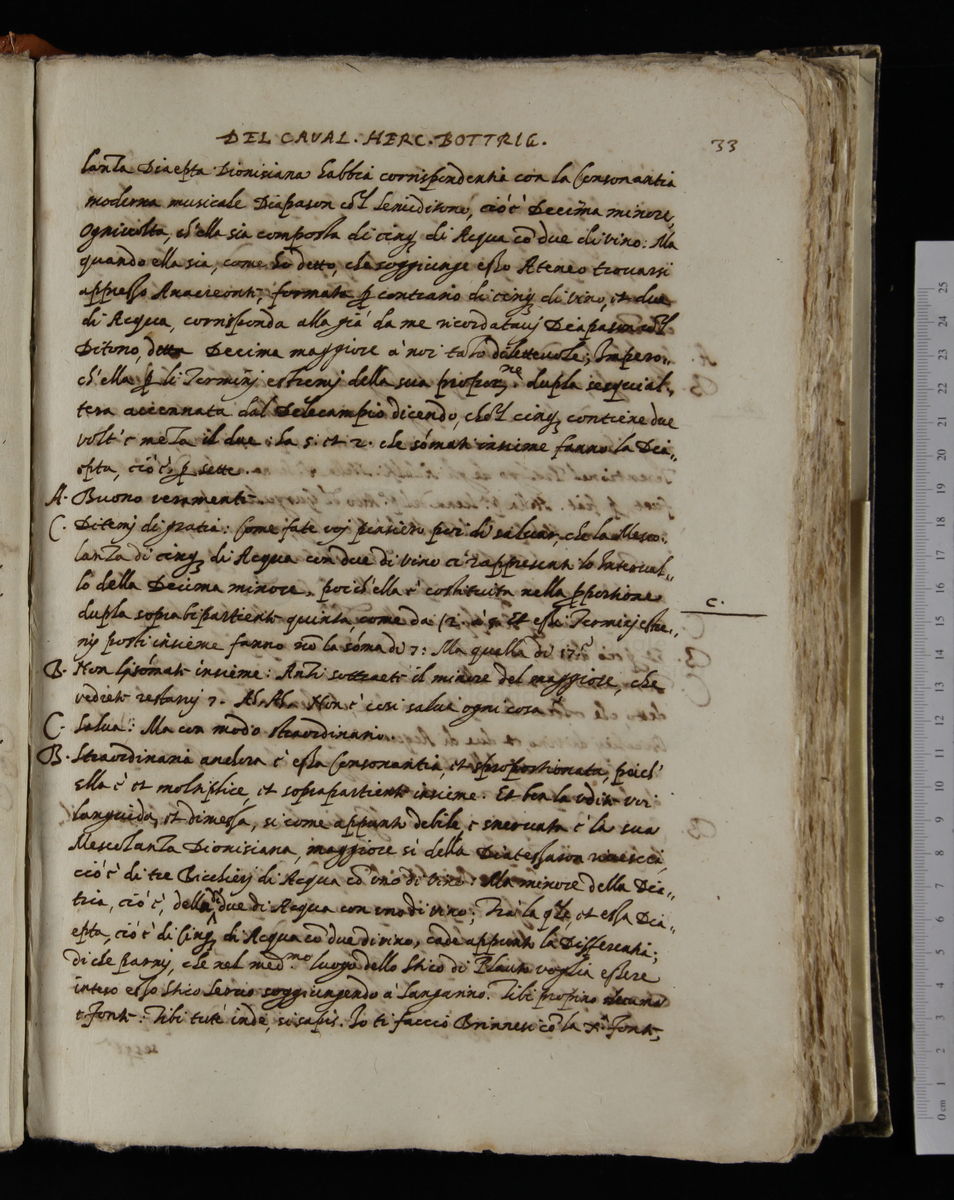 DEL CAVAL. HERC. BOTTRIG.
33
lanza Diaepta Dionisiana habbia corrispondentia con la Consonantia
moderna musicale Diapason co'l Semiditono, ciò è Decima minore,
Ogni volta, ch'ella sia composta di cinq3 di Acqua cõ due di vino: Ma
quando ella sia, come hò detto, che soggiunge esso Ateneo trovarsi
appresso Anacreonte, formata p contrario di cinq3 di vino, et due
di Acqua, corrisponda alla già da me ricordatavj Diapason co'l
Ditono, detta Decima maggiore à noi tato dilettevole; Impero„
ch'ella p li Terminj estremj della sua propor.ne dupla sesquial„
tera accennata dal Delecampio dicendo, che'l cinq3 contiene due
volt'e meza il due: ha 5. et 2. che sõmati insieme fanno la Dia„
epta, ciò è, p sette.
A. Buono veramente.
C. Ditemj di gratia: Come fate voj pensiero poi di salvar, che la Mesco„
lanza di cinq3 di Acqua con due di vino ci rappresenti lo Interval„
lo della Decima minore, poich'ella è costituita nella pportione
c.
dupla soprabipartiente quinta, come da 12. à 5. Et essi Terminj estre„
mj posti insieme fanno nõ la sõma di 7: Ma quella di 17.?
B. Non li sõmate insieme: Anzi sottraete il minore del maggiore, che
vedrete restarvj 7. Ah, Ah. Non è così salva ogni cosa?
C. Salva: Ma con modo straordinario.
B. Straordinaria anchora è essa Consonantia, et sproportionata, poich'
ella è et molteplice, et soprapartiente insieme. Et ben la udite voi
languida, et dimessa, si come appunto debile, e snervata è la sua
Mescolanza Dionisiana, maggiore sì della Diatessaron
ciò è di tre Bicchierj di Acqua cõ uno di vino: Ma minore della Dia„
tria, ciò è, della di due di Acqua con uno di vino; Trà la q'le, et essa Dia„
epta, ciò è di Cinq3 di Acqua cõ due di vino, cade appunto la Differentia;
Di che parmj, che nel med.mo luogo dello Stico di Plauto voglia essere
inteso esso Stico servo soggiungendo à Sangarino. Tibi propino decuma
è fonte: Tibi tute inde, si sapis. Io ti faccio Brinnesi cõ la X.a fonte,